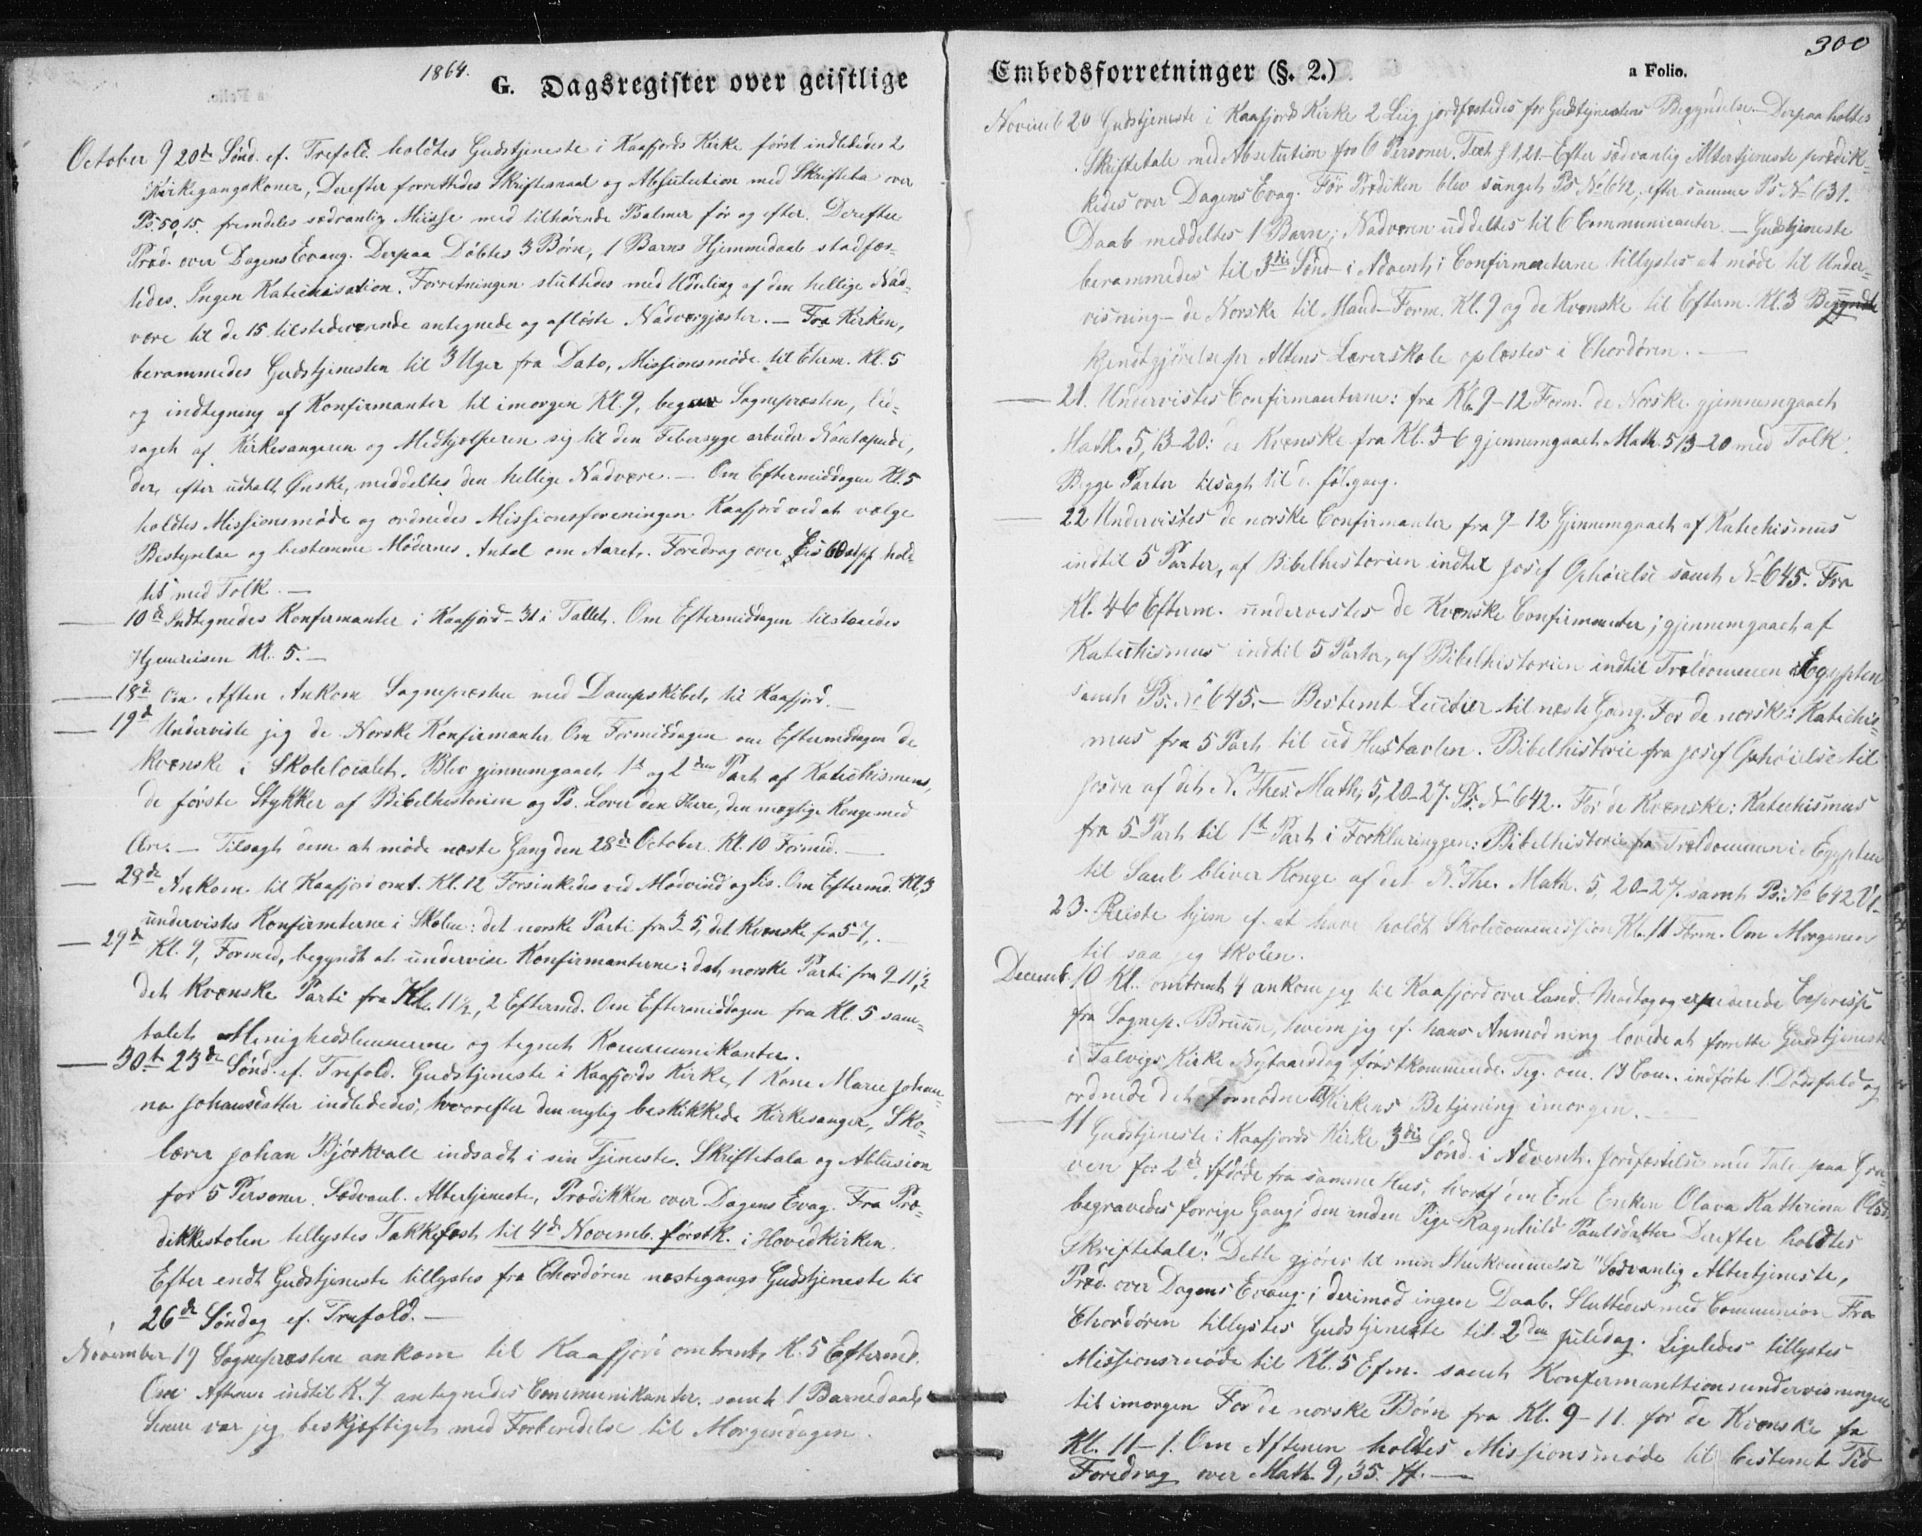 1864.
G. Dagsregister over geistlige
October 9 20de Sønd. ef. Trefold. holdtes Gudstjeneste i Kaafjords Kirke først indlededes 2
Kirkegangskoner, Derefter forrettedes Skriftemaal og Absolution med Skrifteta over
Ps. 50,15. fremdeles sædvanlig Messe med tilhørende Psalmer før og efter. Derefter
Præd. over Dagens Evang. Derpaa Døbtes 3 Børn, 1 Barns Hjemmedaab stadfæs-
tedes. Ingen Katechisation. Forretningen sluttedes med Uddeling af den hellige Nad-
vere til de 15 tilstedeværende antegnede og afløste Nadvergjæster. — Fra Kirken,
berammedes Gudstjenesten til 3 Uger fra Dato, Missionsmøde til Efterm. Kl. 5
og indtegning af Konfirmanter til imorgen Kl. 9, begav Sognepræsten, led-
saget af Kirkesangeren og Medhjelperen sig til den Febersyge arbeider
der, efter udtalt Ønske, meddeltes den hellige Nadvere. — Om Eftermiddagen Kl. 5
holdtes Missionsmøde og ordnedes Missionsforeningen Kaafjord ved at vælge
Bestyrelse og bestemme Mødernes Antal om Aaret. Foredrag over Es 60 hold-
tes med Tolk. —
— 10de Indtegnedes Konfirmanter i Kaafjord - 31 i Tallet. Om Eftermiddagen tiltraadtes
Hjemreisen Kl. 5. —
— 18de Om Aften Ankom Sognepræsten med Dampskibet til Kaafjord. —
— 19de Underviste jeg de Norske Konfirmanter Om Formiddagen om Eftermiddagen de
kvænske i Skolelocalet. Blev gjennemgaaet 1ste og 2den Part af Katechismens,
de første Stykker af Bibelhistorien og Ps. Lover den Herre, den mægtige Konge med
Ære. — Tilsagt dem at møde næste Gang den 28de October Kl. 10 Formid. —
— 28de Ankom til Kaafjord omt. Kl. 12 Forsinkedes ved Modvind og Is. Om Eftermd. Kl. 3
undervistes Konfirmterne i Skolen: det norske Parti fra 3-5, det Kvænske fra 5-7.
— 29de Kl. 9, Formed, begyndt at undervise Konfirmanterne: det norske Parti fra 9-11½
det Kvænske Parti fra Kl. 11½, 2 Eftermd. Om Eftermiddagen fra Kl. 5 sam-
talet Menighedslemmerne og tegnet Kommunikanter.
— 30te 23de Sønd. ef. Trefold. Gudstjeneste i Kaafjords Kirke, 1 Kone Maria Johan-
na Johansdatter indlededes, hvorefter den nylig beskikkede Kirkesanger, Sko-
lærer Johan Bjørkvall indsadt i sin Tjeneste. Skriftetala og Ablusion
for 5 Personer. Sædvanl. Altertjeneste, Prædikken over Dagens Evag. Fra Præ-
dikkestolen tillystes Takkefest til 4de Novemb. førstk. i Hovedkirken.
Efter endt Gudstjeneste tillystes fra Chordøren næstegangs Gudstjeneste til
26de Søndag ef. Trefold. —
November 19 Sognepræsten ankom til Kaafjord omtrent, K. 5 Eftermd.
Om Aftenen indtil K. 7 antegnedes Communikanter. samt 1 Barnedaab
Senere var jeg beskjæftiget med Forberedelse til Morgendagen.
300
Embedsforretninger (§. 2.)
a Folio.
Novemb 20 Gudstjeneste i Kaafjords Kirke 2 Liig jordfæstedes før Gudstjenestens Begyndelse. Derpaa holdtes
Skriftetale med Absolution for 6 Personer. Text 1,21 - Efter sædvanlig Altertjeneste prædik-
kedes over Dagens Evag. Før Prædiken blev sunget Ps. No 642, efter samme Ps. No 631.
Daab meddeltes 1 Barn; Nadveren uddeltes til 6 Communicanter. — Gudstjeneste
berammedes til 3die Sønd i Advent; Confirmanterne tillystes at møde til Under-
visning - de Norske til Mand- Form. Kl. 9 og de Kvænske til Efterm. Kl. 3 Begyndt
Kjendtgjørelse for Altens Lærerskole oplæstes i Chordøren. —
— 21. Undervistes Confirmanterne: fra Kl. 9-12 Form. de Norske gjennemgaaet
Math. 5,13-20: de Kvænske fra Kl. 3-6 gjennemgaaet Math. 5 13-20 med Tolk.
Begge Parter tilsagt til d. følgang.
— 22 Undervistes de norske Confirmanter fra 9-12 Gjennemgaaet af Katechismus
indtil 5 Parter, af Bibelhistorien indtil Josef Ophøielse samt No 645. Fra
Kl. 4-6 Efterm. undervistes de Kvænske Confirmanter; gjennemgaaet af
Katechismus indtil 5 Parter, af Bibelhistorien indtil Trældommen i Egypten
samt Ps. No 645. — Bestemt Lectier til næste Gang. For de norske: Katechis-
mus fra 5 Part til ud Hustavlen. Bibelhistorie fra Josef Ophøielse til
Josva af det N. Thes. Math. 5, 20-27. Ps. No 642. For de Kvænske: Katechismus
fra 5 Part til 1ste Part i Forklaringen: Bibelhistorie fra Trældommen i Egypten
til Saul bliver Konge af det N. The. Math. 5, 20-27. samt Ps. No 642
23. Reiste hjem ef. at have holdt Skolecommission Kl. 11 Form. Om Morgenen
til saa jeg Skolen.
Decemb. 10 Kl. omtrent 4 ankom jeg til Kaafjord over Land. Modtog og expederede Expresse
fra Sognep. Bruun, hvem jeg ef. hans Anmodning lovede at forrette Gudstjeneste
i Talvigs Kirke Nytaarsdag førstkommende. Teg. om. 17 Com. indførte 1 Dødsfald og
ordnede det Fornødne til Kirkens Betjening imorgen. —
— 11 Gudstjeneste i Kaafjords Kirke 3die Sønd. i Advent. Jordfæstelse med Tale paa Gra-
ven for 2de Afdøde fra samme Hus, hvoraf den Ene Enken Olava Katherina Olsd.
begravedes forrige Gang; den anden Pige Ragnhild Paulsdatter Derefter holdtes
Skriftetale: "Dette gjører til min Ihukommelse" Sædvanlig Altertjeneste,
Præd. over Dagens Evang.; derimod ingen Daab. Sluttedes med Communion Fra
Chordøren tillystes Gudstjeneste til 2den Juledag. Ligeledes tillystes
Missionsmøde til Kl. 5 Efm. samt Konfermanttionsundervisningen
til imorgen For de norske Børn fra Kl. 9-11. for de Kvænske fra
Kl. 11-1. Om Aftenen holdtes Missionsmøde til bestemt Tid
Foredrag over Math. 9, 35. ff. —